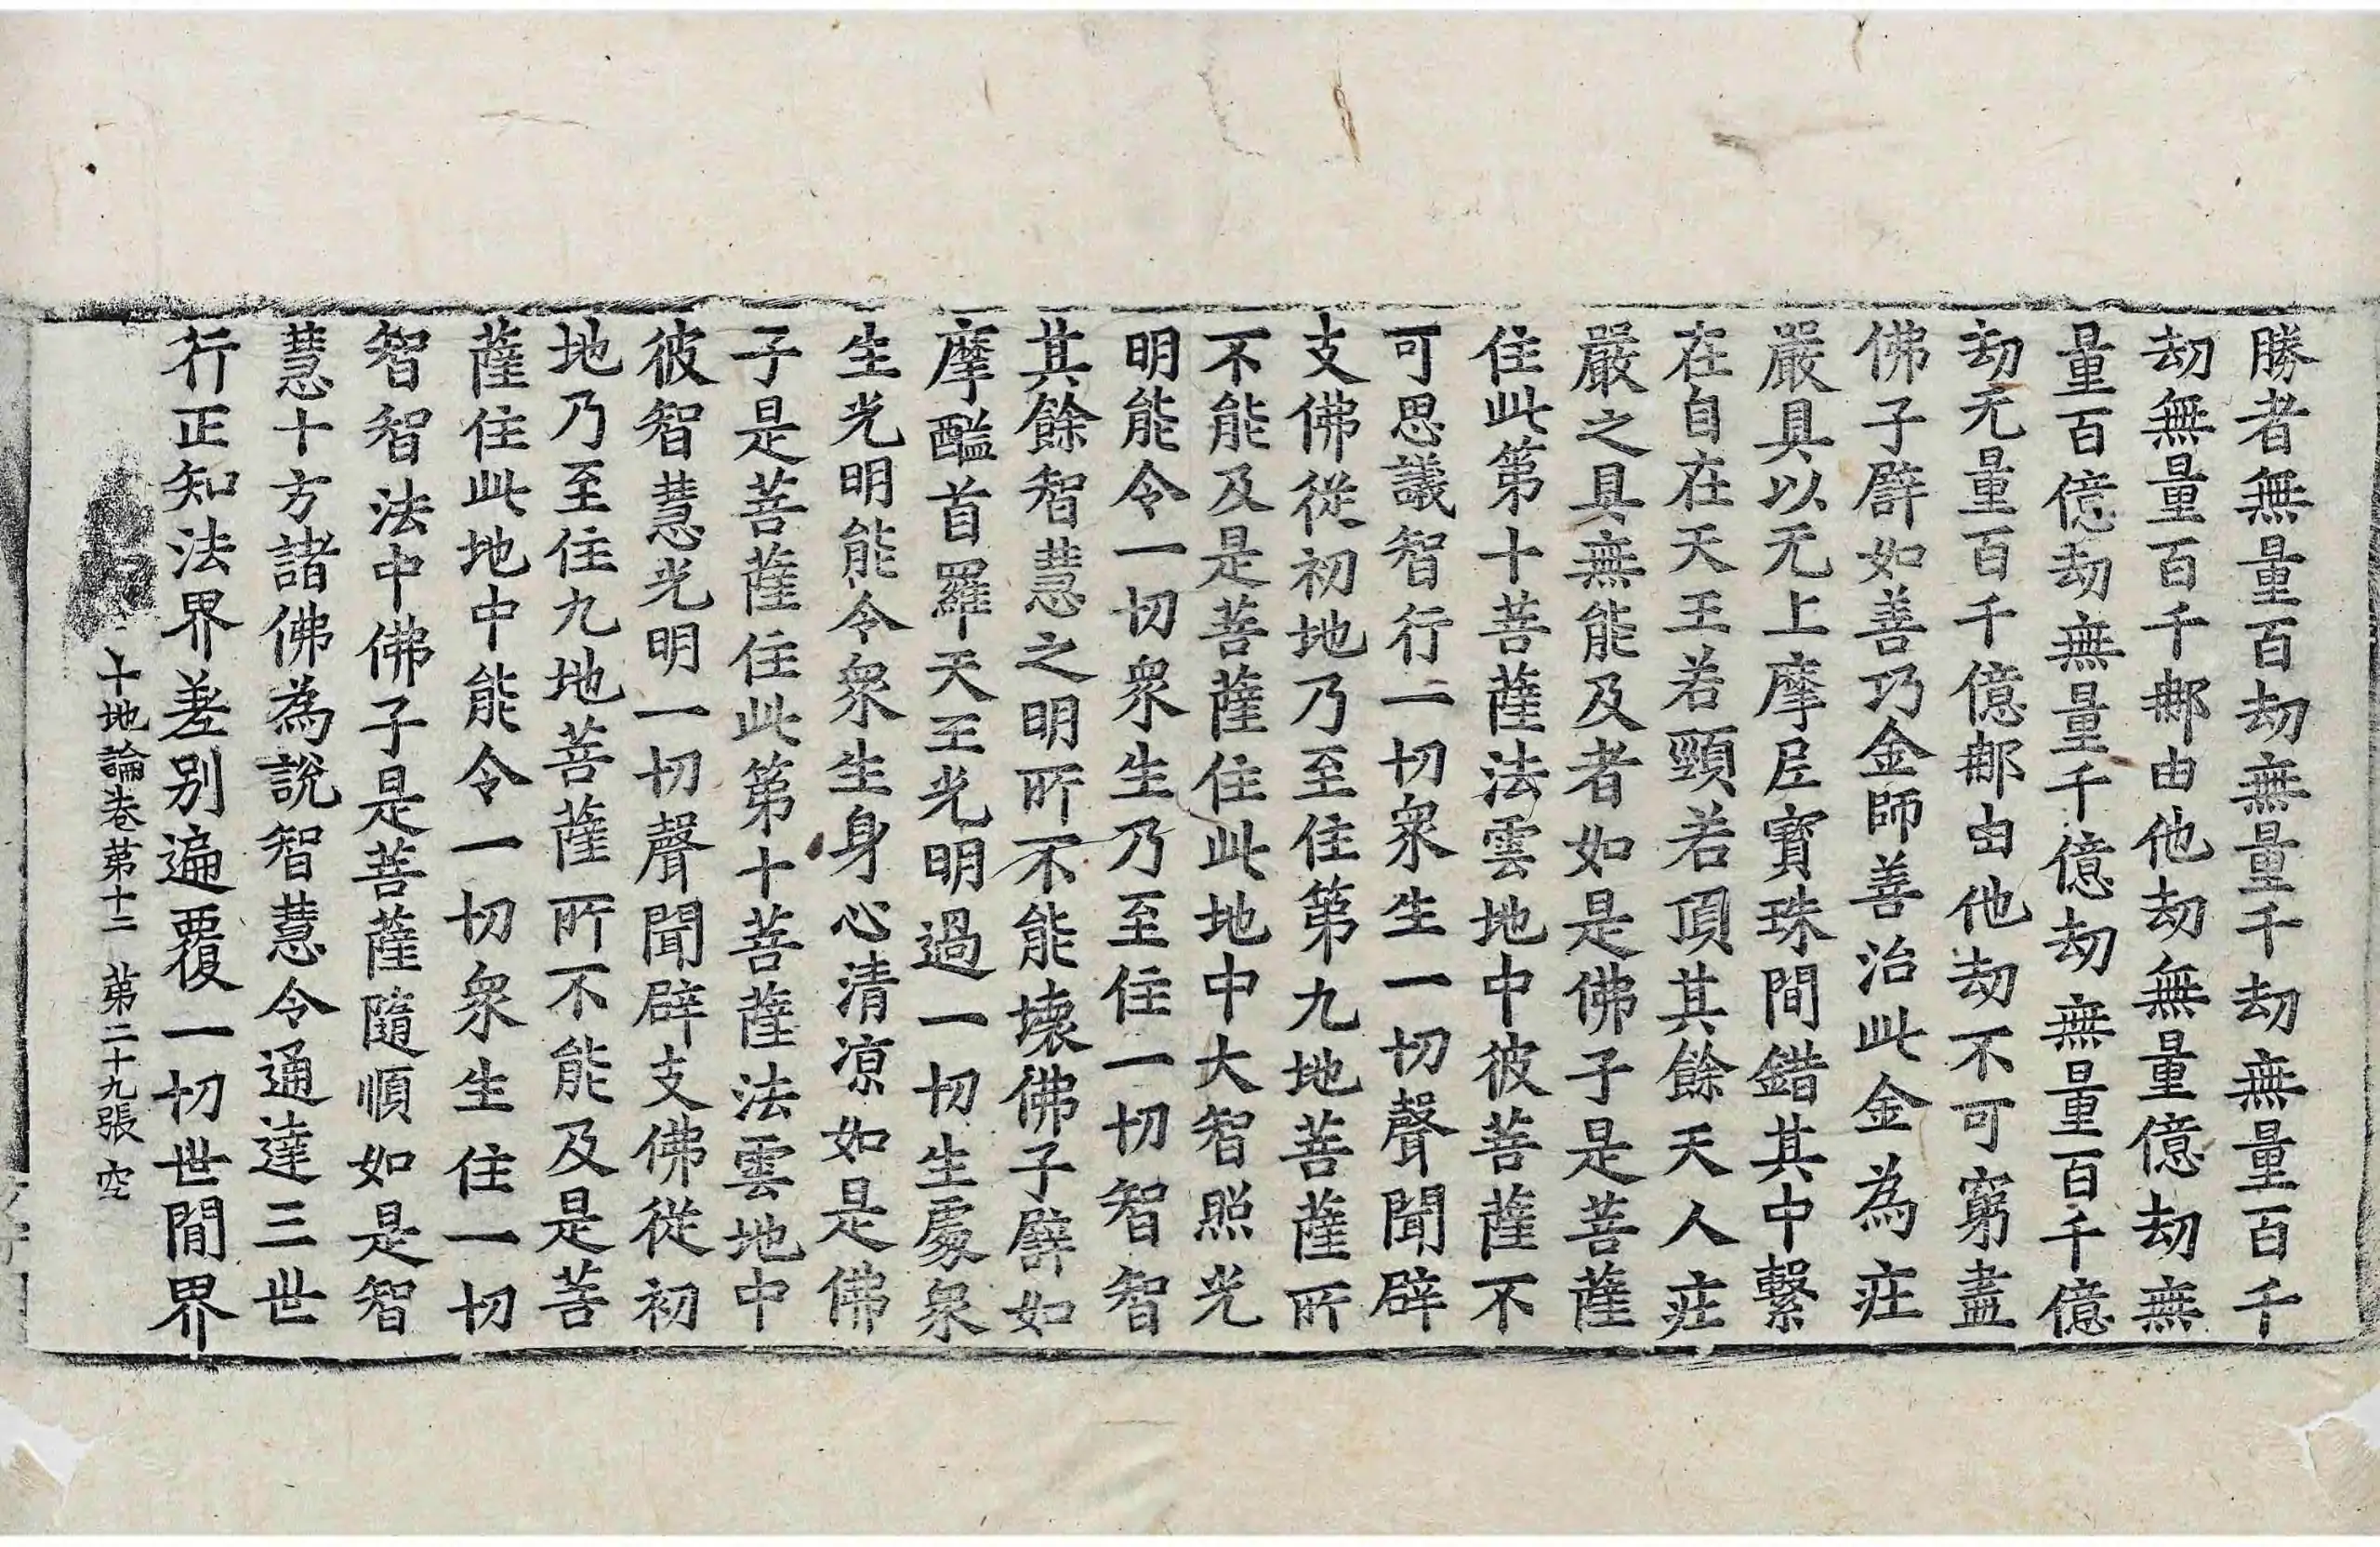 勝者無量百劫無量千劫無量百千
劫無量百千那由他劫無量億劫無
量百億劫無量千億劫無量百千億
劫无量百千億那由他劫不可窮盡
佛子譬如善巧金師善治此金為庄
嚴具以无上摩尼寶珠間錯其中繫
在自在天王若頸若頂其餘天人庄
嚴之具無能及者如是佛子是菩薩
住此第十菩薩法雲地中彼菩薩不
可思議智行一切衆生一切聲聞辟
支佛從初地乃至住第九地菩薩所
不能及是菩薩住此地中大智照光
明能令一切衆生乃至住一切智智
其餘智慧之明所不能壞佛子譬如
摩醯首羅天王光明過一切生處衆
生光明能令衆生身心清凉如是佛
子是菩薩住此第十菩薩法雲地中
彼智慧光明一切聲聞辟支佛從初
地乃至住九地菩薩所不能及是菩
薩住此地中能令一切衆生住一切
智智法中佛子是菩薩隨順如是智
慧十方諸佛為說智慧令通達三世
行正知法界差別遍覆一切世間界
十地論卷第十二 第二十九張 空